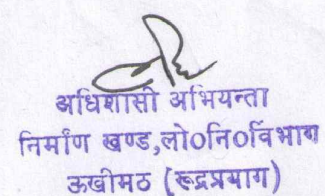 अधिशासी अभियन्ता
निर्माण खण्ड,लो0नि0विभाग
ऊखीमठ (रूद्रप्रयाग)